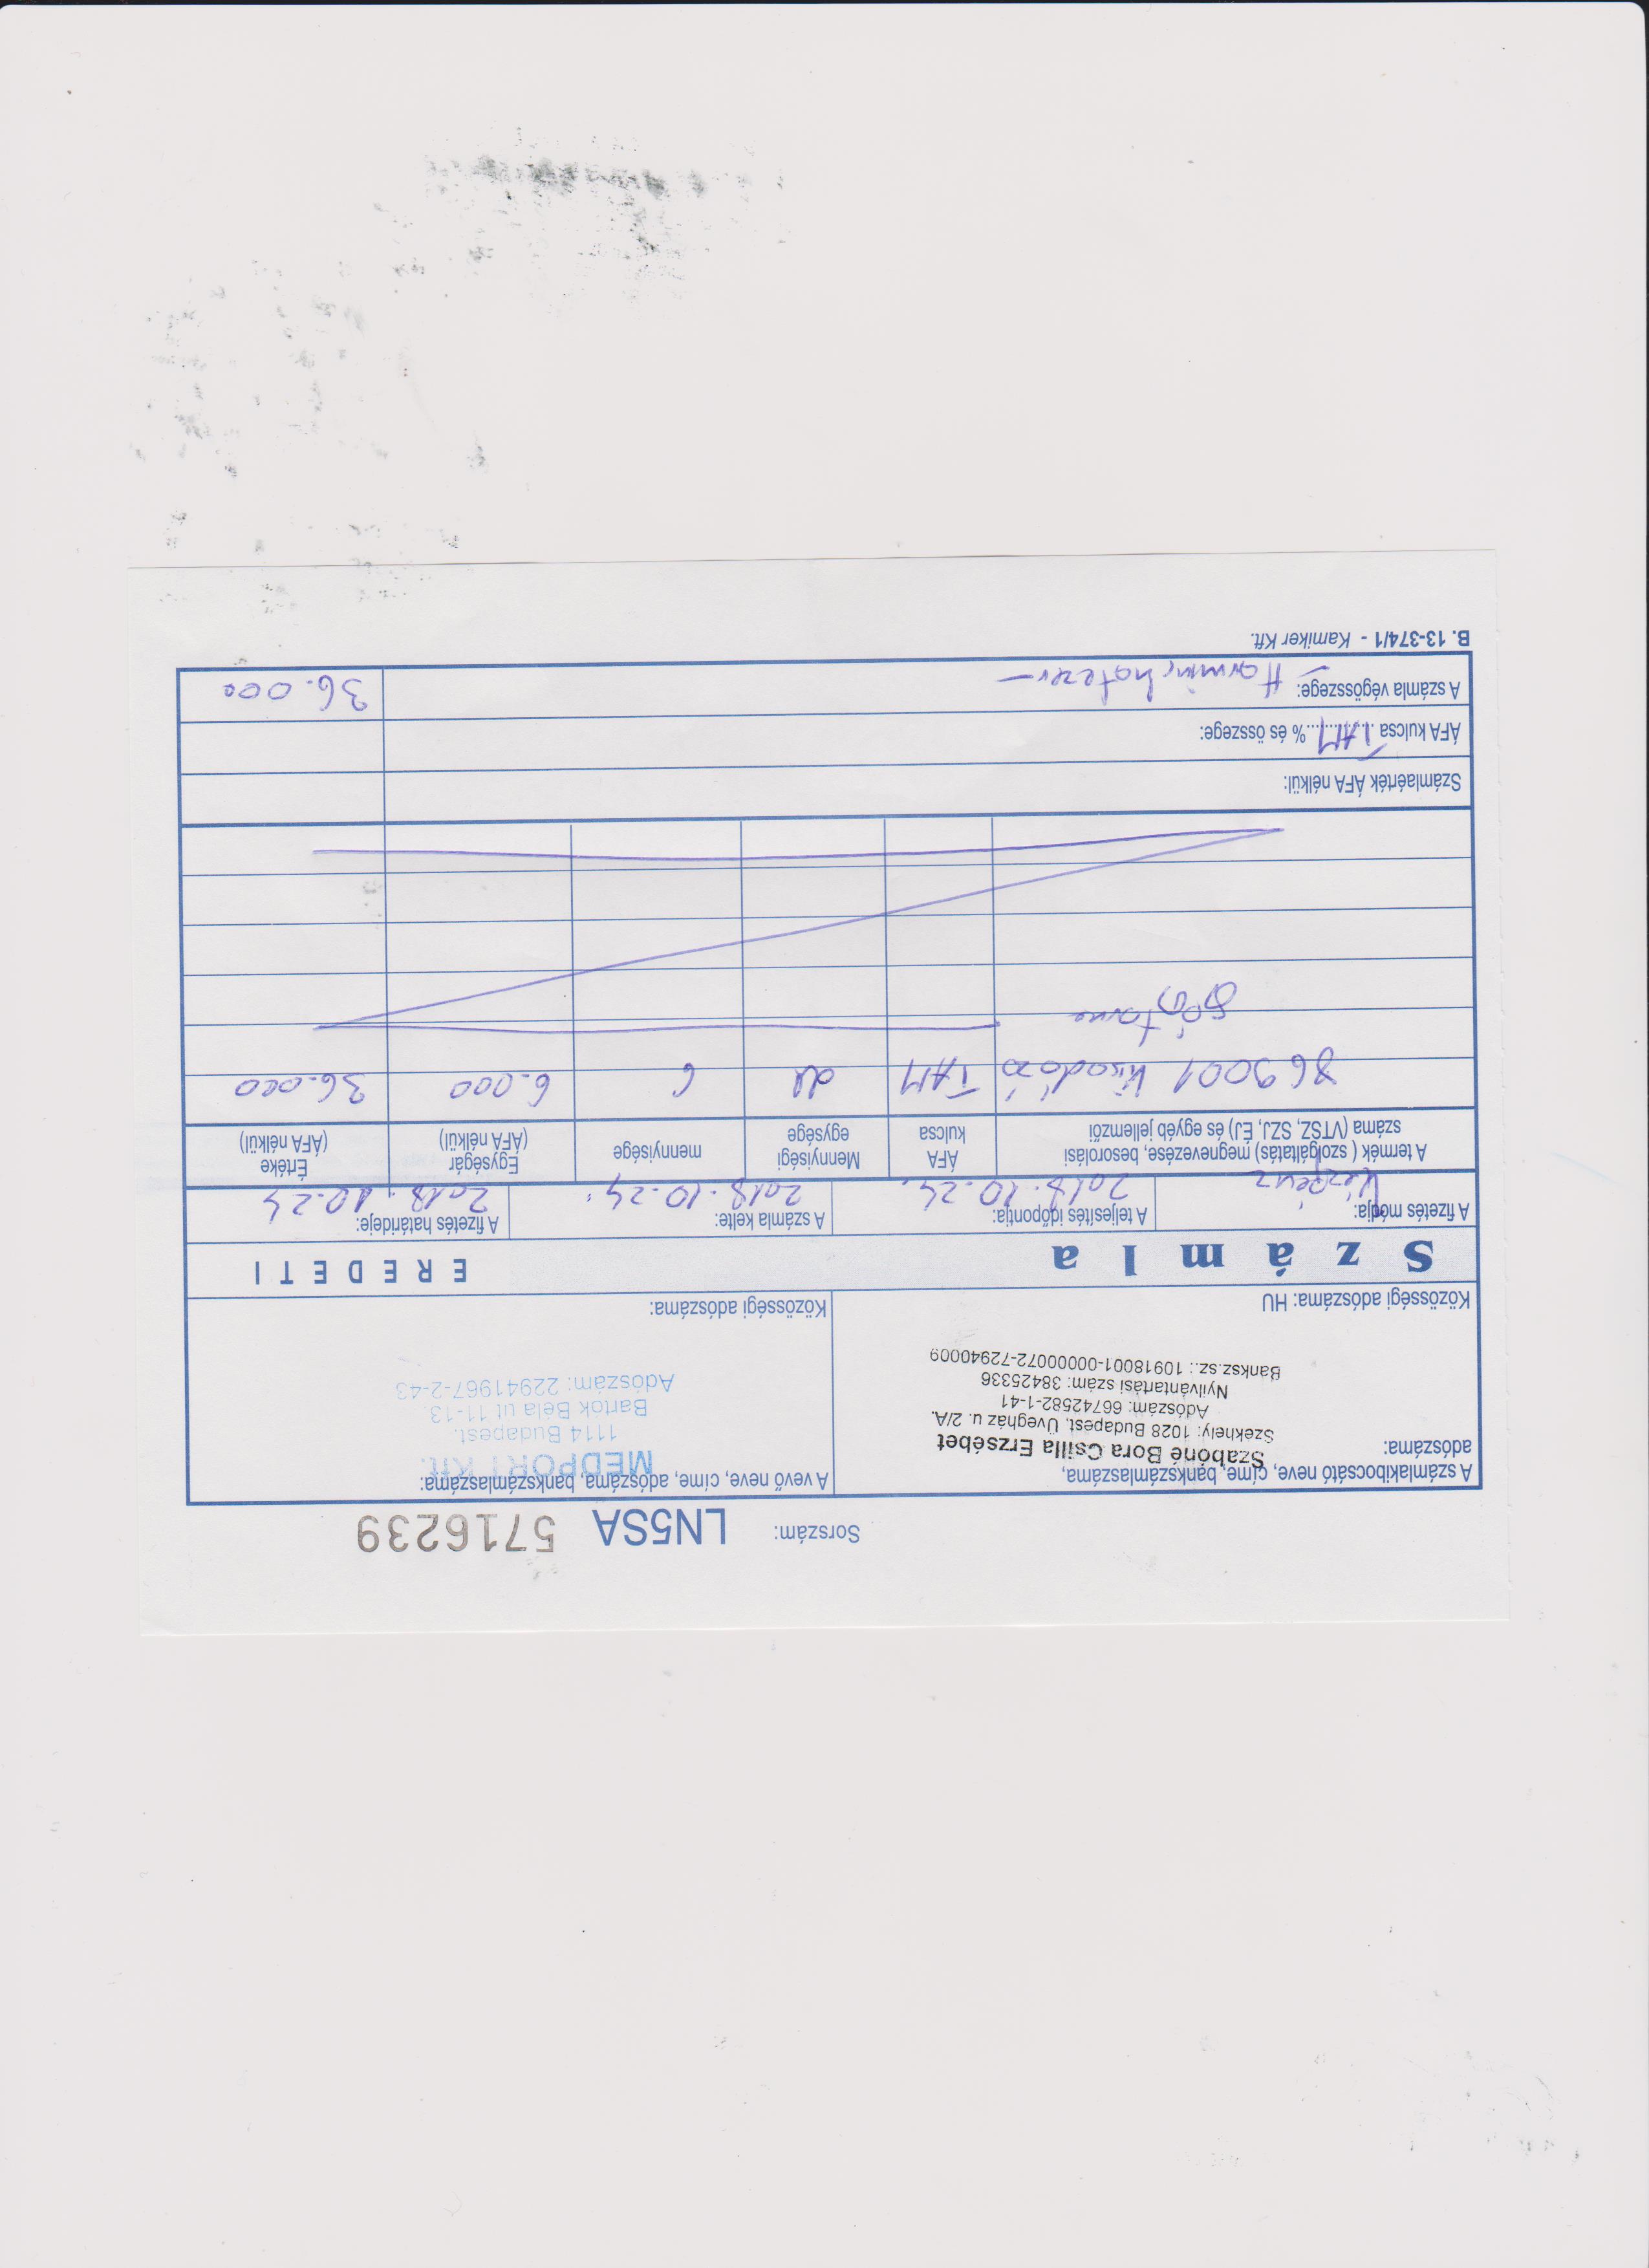 Sorszám: LN5SA 5716239
A számlakibocsátó neve, címe, bankszámlaszáma,
adószáma:
Szabóné Bora Csilla Erzsébet
Székhely: 1028 Budapest, Üvegház u. 2/A.
Adószám: 66742582-1-41
Nyilvántartási szám: 38425336
Banksz.sz.: 10918001-00000072-72940009
Közösségi adószáma: HU
A vevő neve, címe, adószáma, bankszámlaszáma:
MEDPORT Kft.
1114 Budapest.
Bartók Béla út 11-13
Adószám: 22941967-2-43
Közösségi adószáma:
Számla EREDETI
A fizetés módja: A teljesítés időpontja: A számla kelte: A fizetés határideje:
Kézpénz 2018.10.24. 2018.10.24. 2018.10.24
A termék ( szolgáltatás) megnevezése, besorolási
száma (VTSZ, SZJ, ÉJ) és egyéb jellemzői
ÁFA
kulcsa
Mennyiségi
egysége
mennyisége
Egységár
(ÁFA nélkül)
Értéke
(ÁFA nélkül)
869001 Kisadózó TAM 6 6.000 36.000
Számlaérték ÁFA nélkül:
ÁFA kulcsa TAM % és összege:
A számla végösszege: - Harminchatezer - 36.000
B. 13-374/1 - Kamiker Kft.